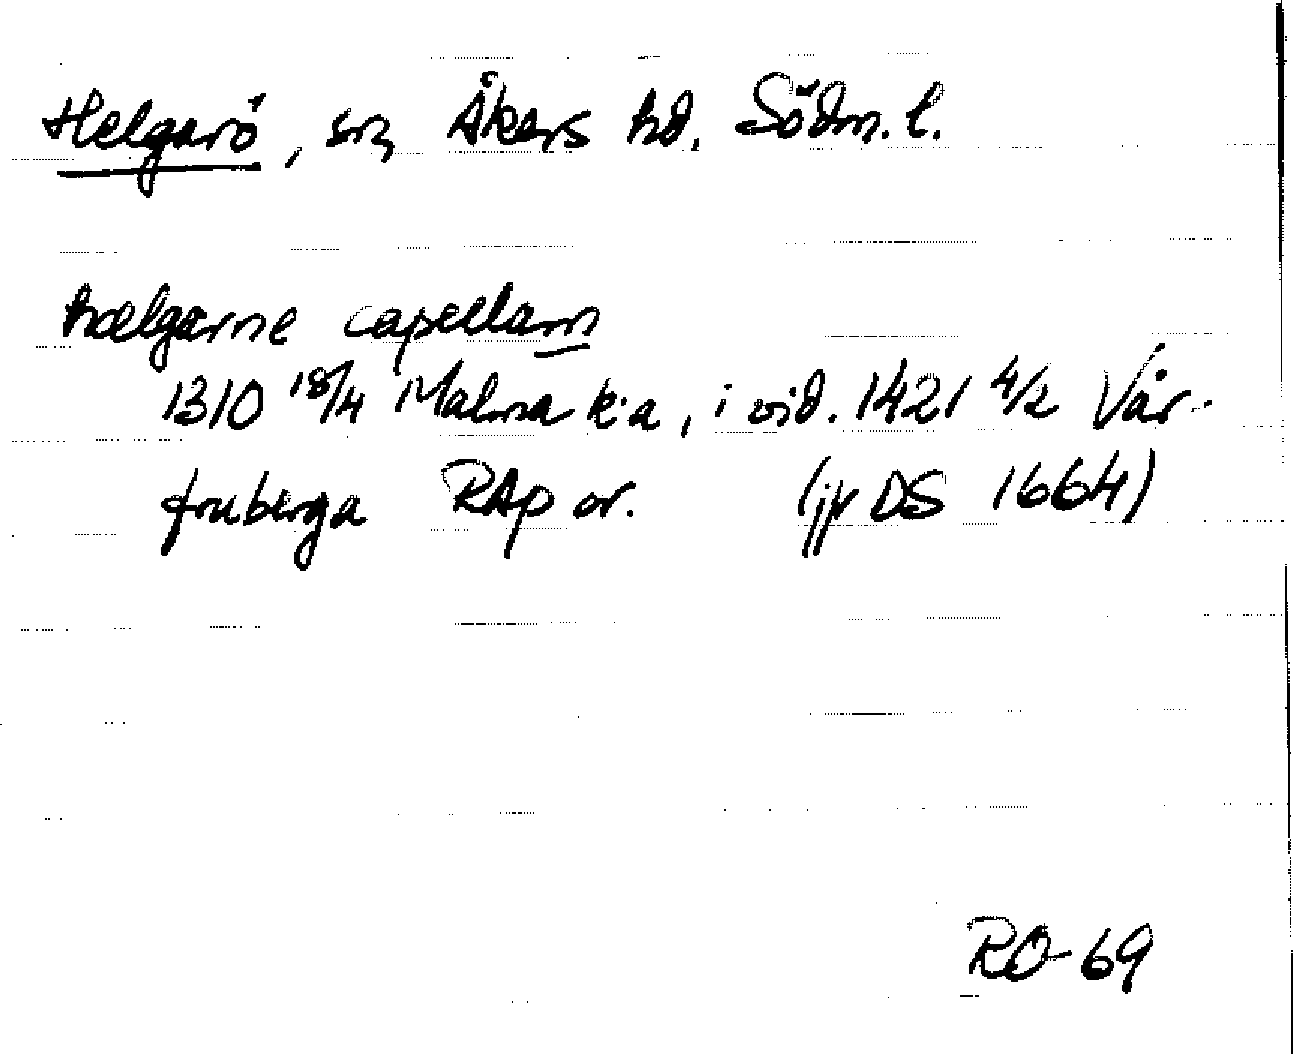 Helgarö, sn, Åkers hd. Södm. l.
hælgarne capellam
1310 18/4 Malma k:a, i vid. 1421 4/2 Vår-
fruberga RAp or. (jfr DS 1664)
RO-69